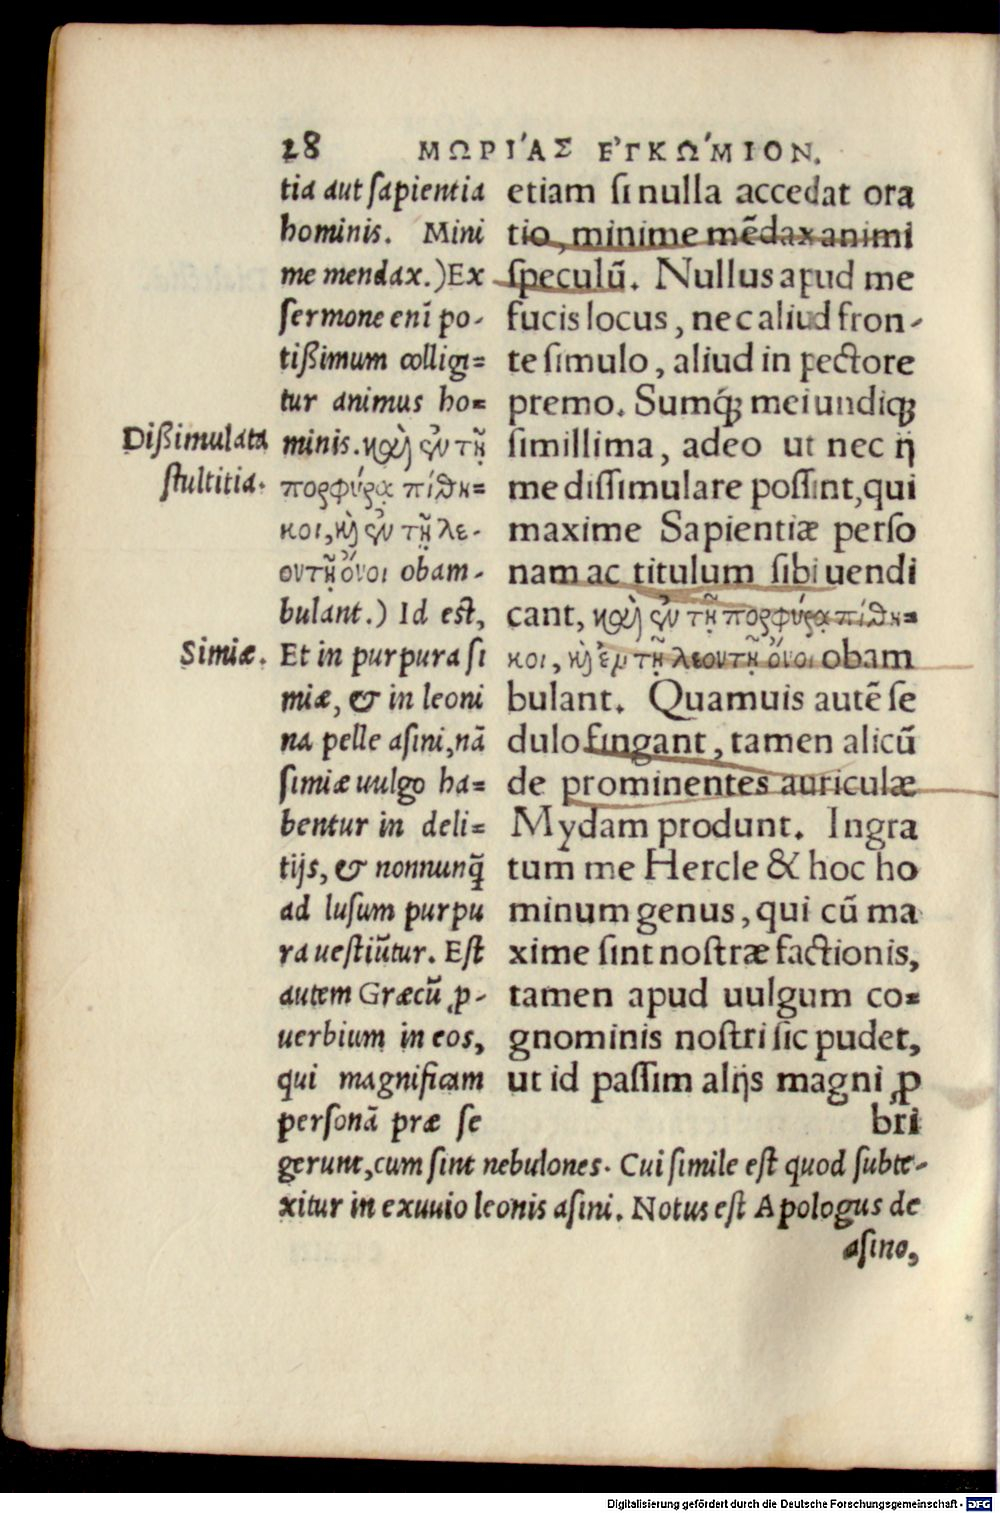 28 ΜΩΡΙ´ΑΣ ΕΓΚΩ´ΜΙΟΝ.
etiam ſi nulla accedat ora
tio, minime mēdax animi
ſpeculū. Nullus apud me
fucis locus, nec aliud fron-
te ſimulo, aliud in pectore
premo. Sumq́; mei undiq;
ſimillima, adeo ut nec ij
me diſſimulare poſſint, qui
maxime Sapientiæ perſo
nam ac titulum ſibi uendi
cant, καὶ ἐν τῇ πορφύρᾳ πίθη=
κοι, κὶ ἐμ τῇ λεοντῇ ὄνοι obam
bulant. Quamuis autē ſe
dulo fingant, tamen alicū
de prominentes auriculæ
Mydam produnt. Ingra
tum me Hercle & hoc ho
minum genus, qui cū ma
xime ſint noſtræ factionis,
tamen apud uulgum co=
gnominis noſtri ſic pudet,
ut id paſſim alijs magni ꝓ
bri
tia aut ſapientia
hominis. Mini
me mendax.) Ex
ſermone enī po-
tißimum collig=
tur animus ho=
minis. καὶ ἐν τῇ
πορφύρᾳ πίθη=
κοι, κὶ ἐν τῇ λε-
οντῇ ὄνοι obam-
bulant.) Id eſt,
Et in purpura ſi
miæ, & in leoni
na pelle aſini, nā
ſimiæ uulgo ha=
bentur in deli=
tijs, & nonnunq̄
ad luſum purpu
ra ueſtiūtur. Eſt
autem Græcū ꝓ-
uerbium in eos,
qui magnificam
perſonā præ ſe
gerunt, cum ſint nebulones. Cui ſimile eſt quod ſubte-
xitur in exuuio leonis aſini. Notus eſt Apologus de
aſino,
Dißimulata
ſtultitia.
Simiæ.
Digitalisierung gefördert durch die Deutsche Forschungsgemeinschaft - DFG